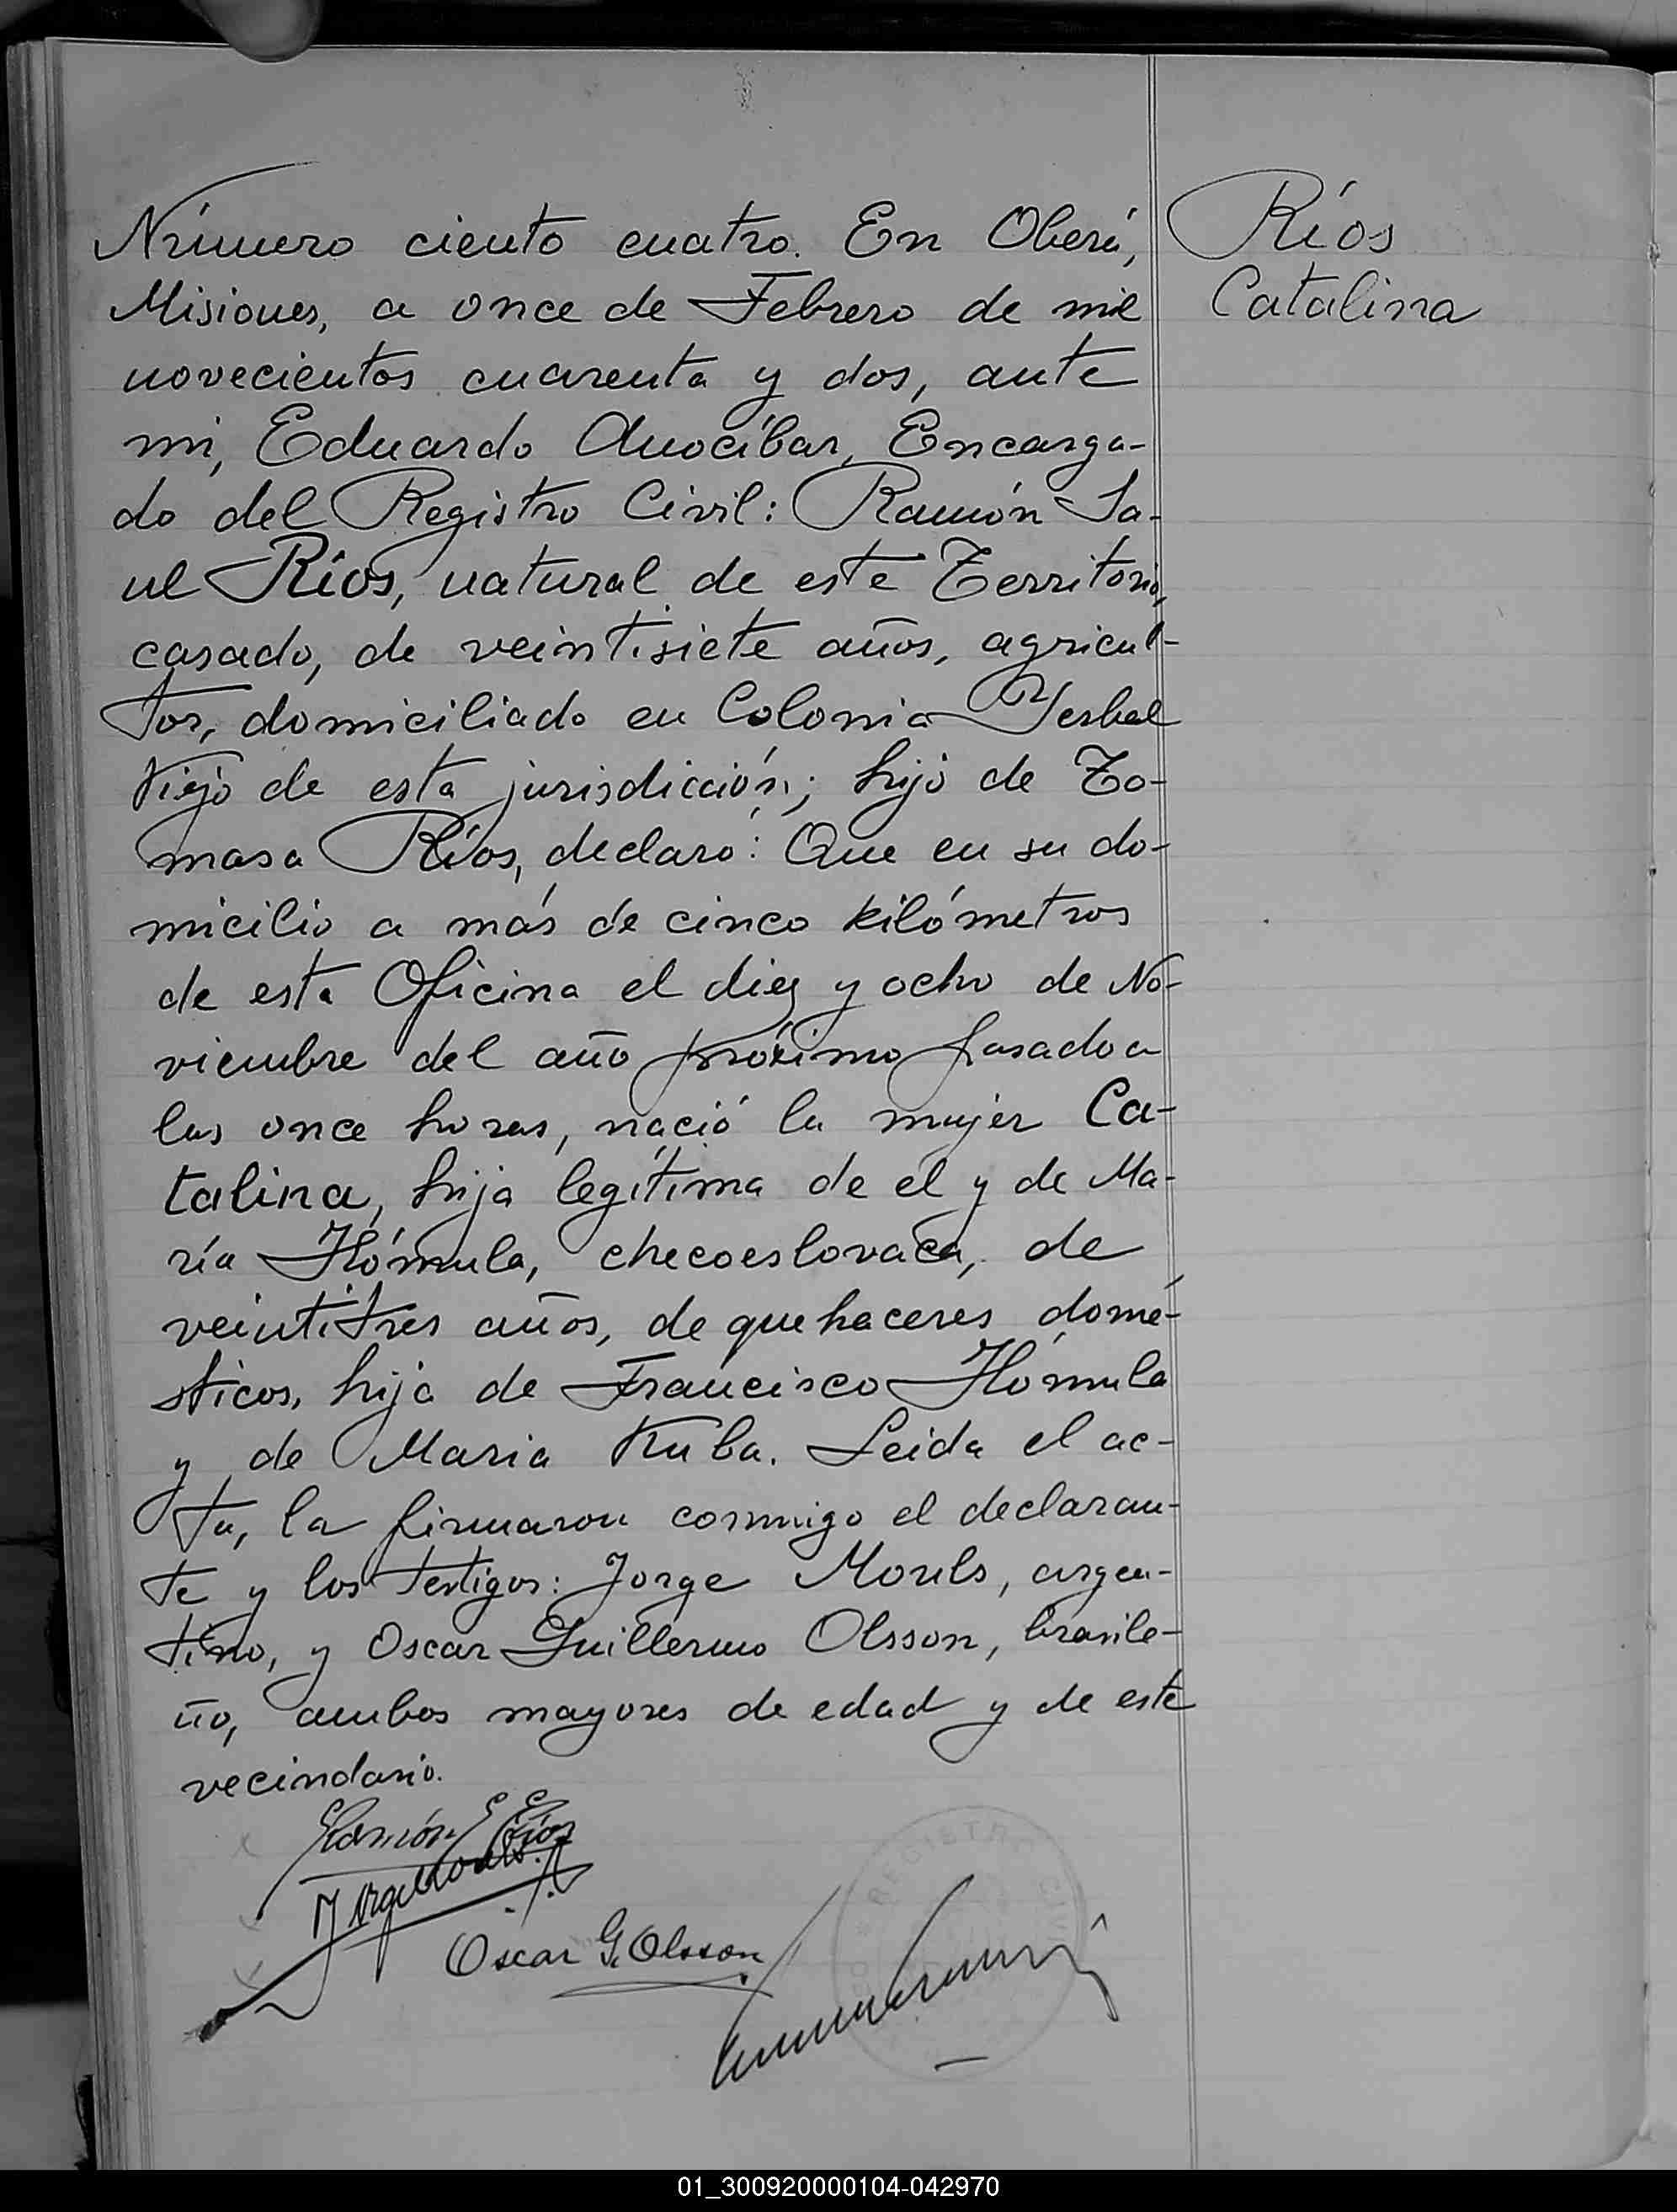 Número ciento cuatro. En Oberá,
Misiones, a once de Febrero de mil
novecientos cuarenta y dos, ante
mi, Eduardo Anocíbar, Encarga-
do del Registro Civil: Ramón Sa-
ul Ríos, natural de este Territorio,
casado, de veintisiete años, agricul-
tor, domiciliado en Colonia Yerbal
Viejo de esta jurisdicción; hijo de To-
masa Ríos, declaró: Que en su do-
micilio a más de cinco kilómetros
de esta Oficina el diez y ocho de No-
viembre del año próximo pasado a
las once horas, nació la mujer Ca-
talina, hija legítima de él y de Ma-
ría Hómula, checoeslovaca, de
veintitres años, de quehaceres domé-
sticos, hija de Francisco Hómula
y de Maria Kuba. Leida el ac-
ta, la firmaron conmigo el declaran-
te y los testigos: Jorge Mouls, argen-
tino, y Oscar Guillermo Olsson, brasile-
ño, ambos mayores de edad y de este
vecindario.
Ríos
Catalina
Ramón S Ríos
Jorge Mouls
Oscar G. Olsson
REGISTR CIV
01_300920000104-042970